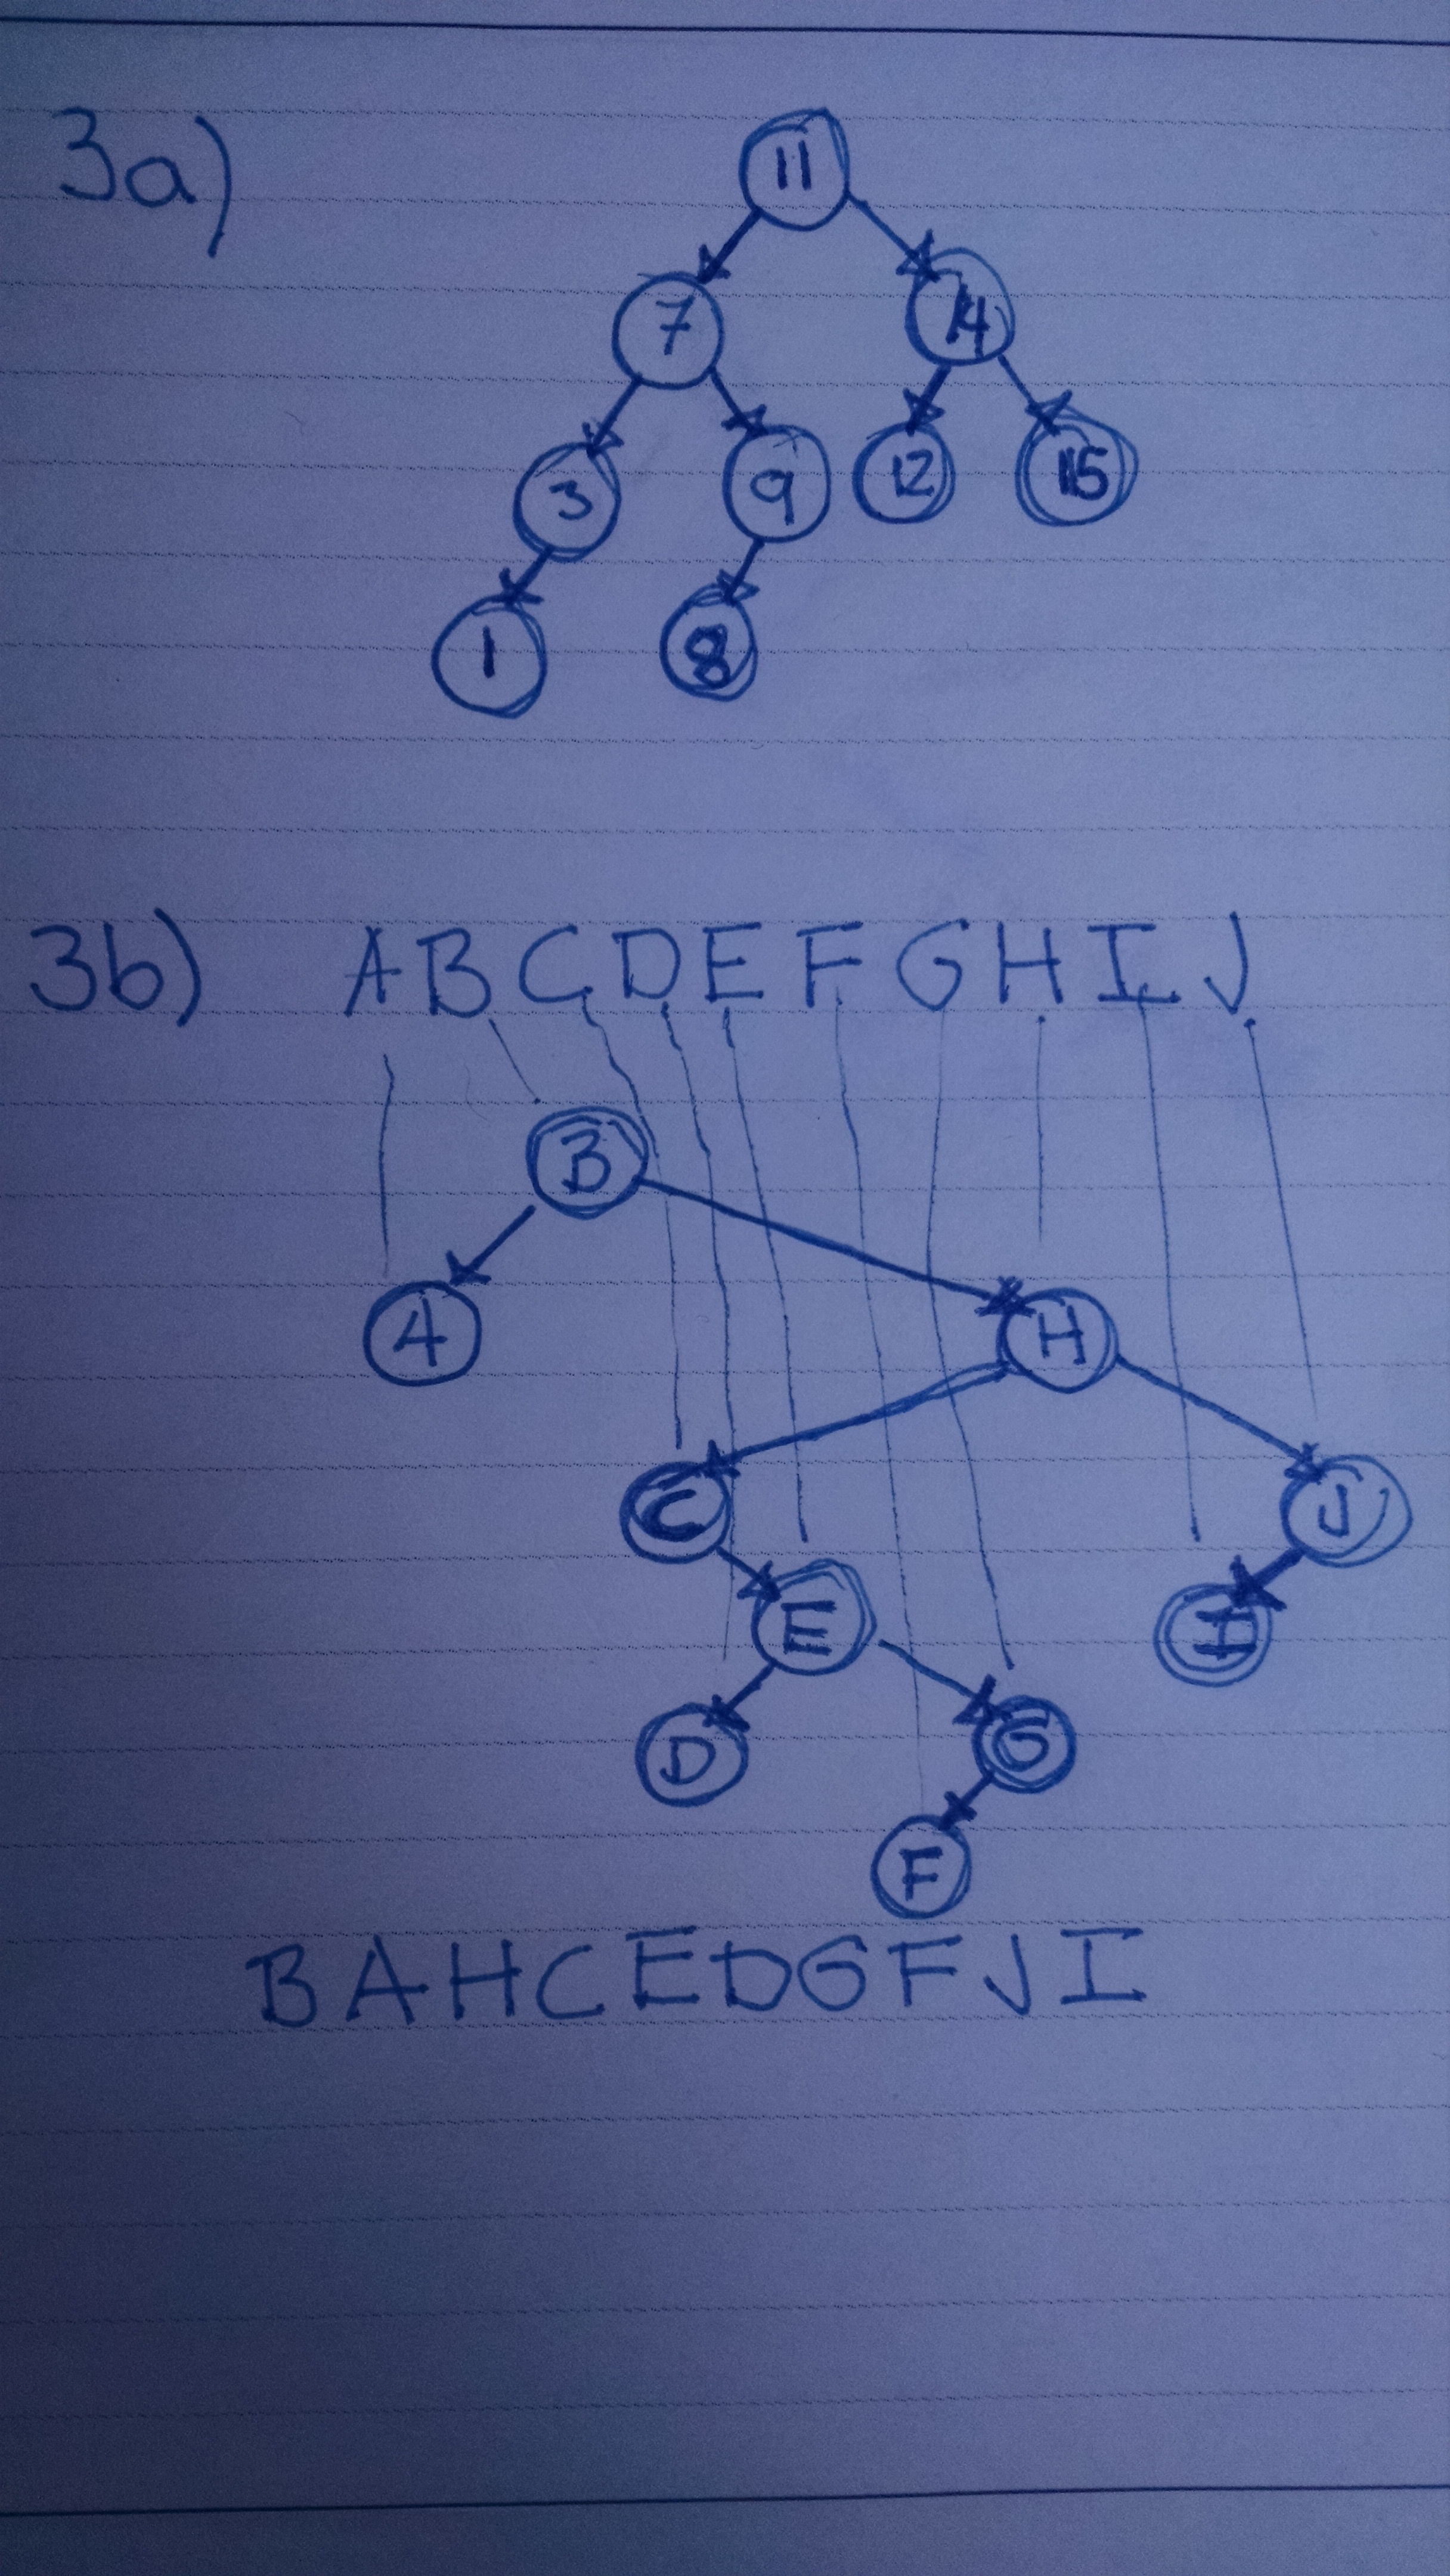 3a)
11
7 14
3 9 12 15
1 8
3b) A B C D E F G H I J
B
A H
C J
E I
D G
F
B A H C E D G F J I